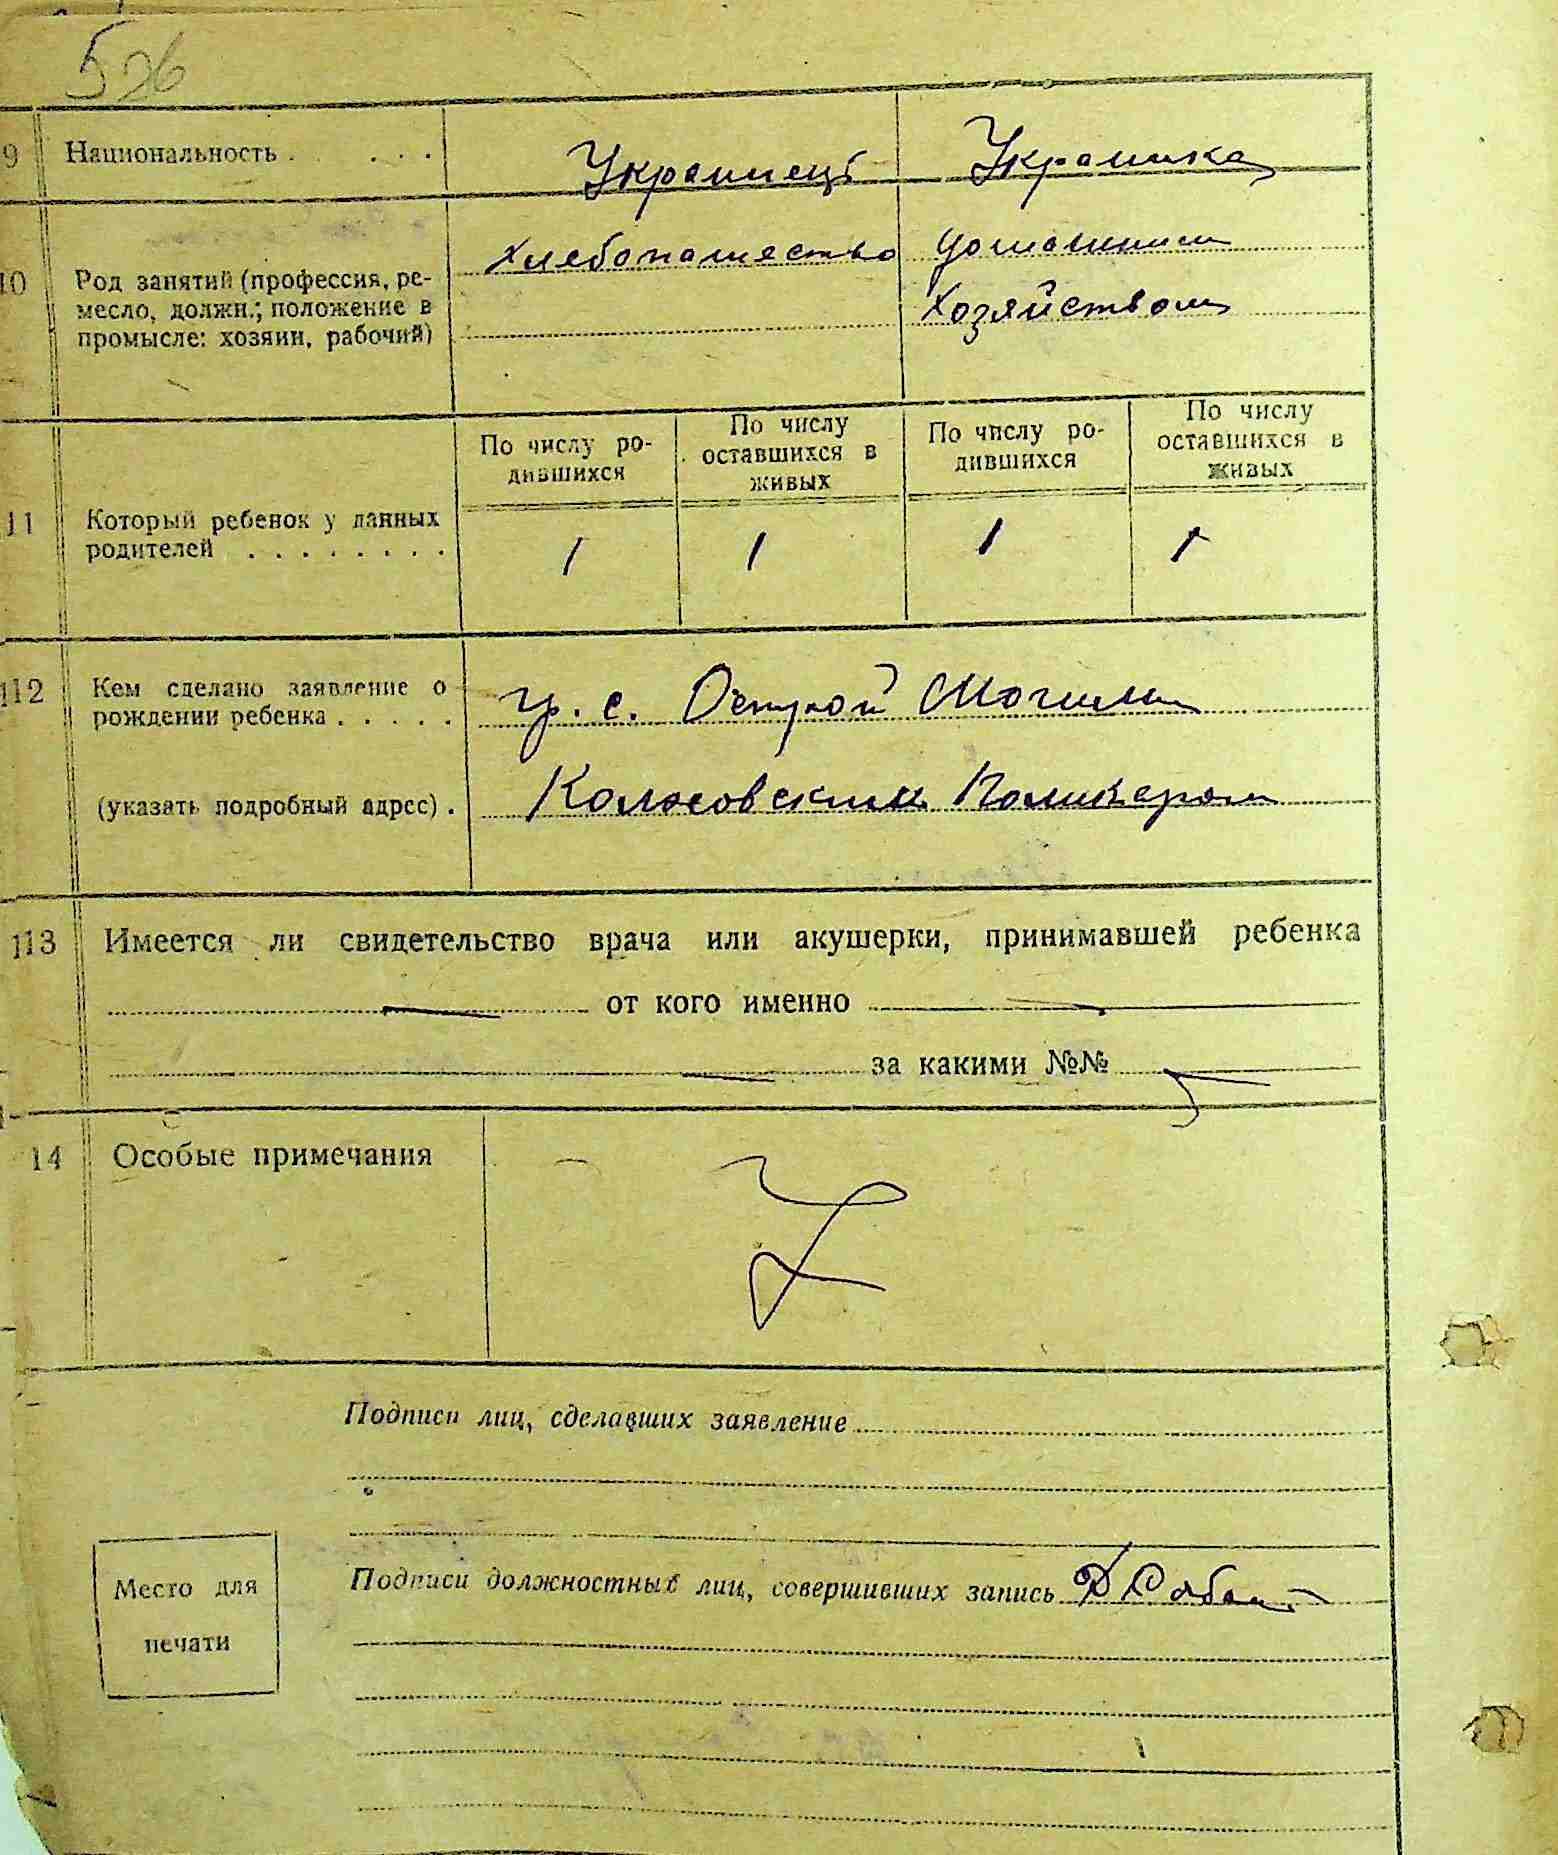 526
9 Национальность . . . . Украинецъ Украинка
10 Род занятий (профессия, ре-
месло, должн.; положение в
промысле: хозяин, рабочий)
хлебопашество домашним
хозяйством
По числу ро-
дившихся
По числу
оставшихся в
живых
По числу ро-
дившихся
По числу
оставшихся в
живых
11 Который ребенок у данных
родителей . . . . . . . .
1 1 1 1
12 Кем сделано заявление о
рождении ребенка . . . . .
гр. с. Острой Могилы
(указать подробный адрес) .
13 Имеется ли свидетельство врача или акушерки, принимавшей ребенка
— от кого именно —
— за какими №№ —
14 Особые примечания
Подписи лиц, сделавших заявление
Подписи должностных лиц, совершивших запись
Место для
печати